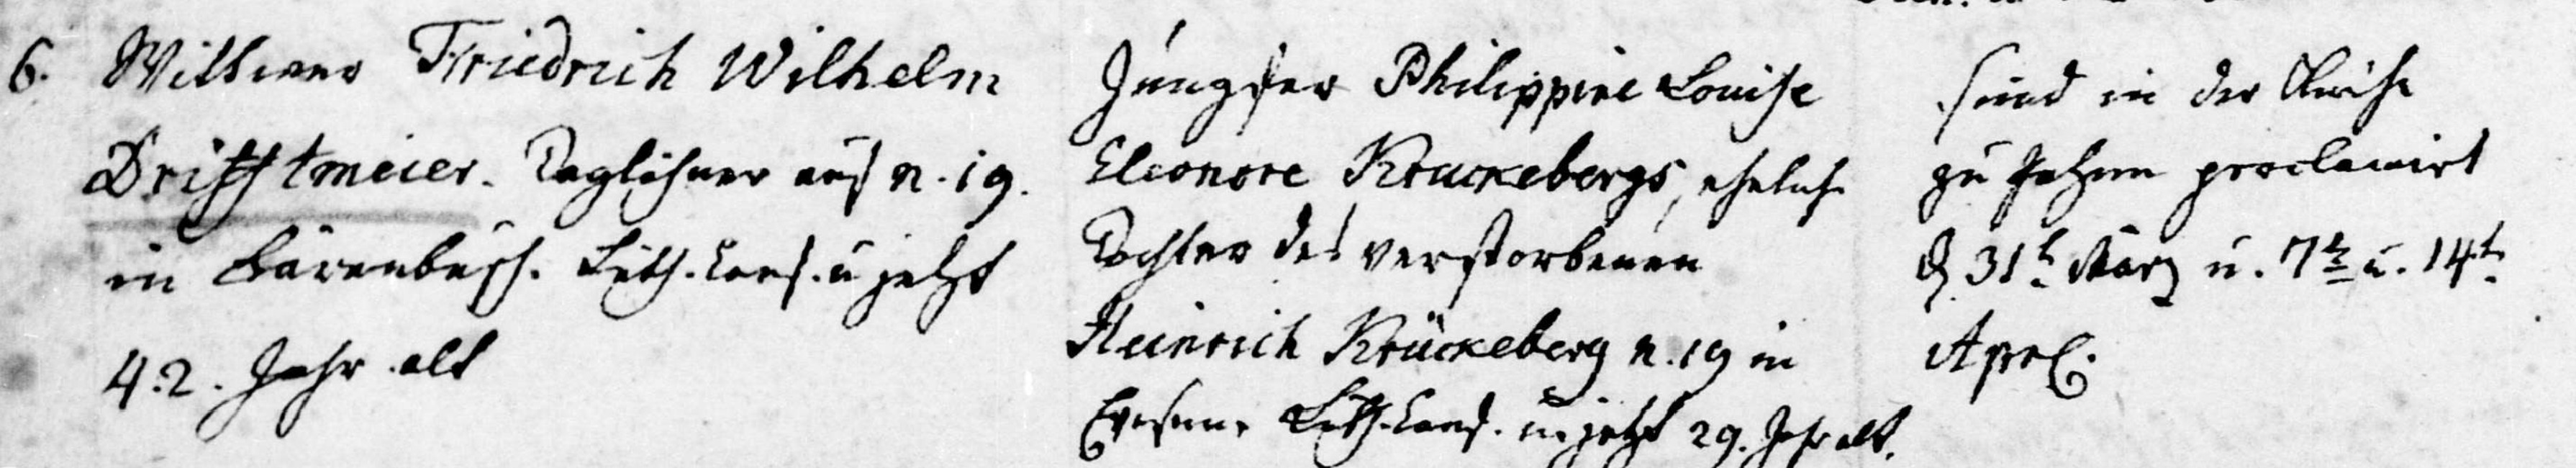 6. Wittwer Friedrich Wilhelm
Drifftmeier. Taglöhner aus n. 19.
in Bärenbusch. Luth. Conf. u jetzt
42. Jahr alt
Jungfer Philippine Louise
Eleonore Kruckebergs, eheliche
Tochter des verstorbenen
Heinrich Krückeberg n. 19 in
Luth. Conf. u jetzt 29. Jahr alt.
sind in der Kirche
zu proclamirt
d 31t März u. 7t u. 14t
Aprl.